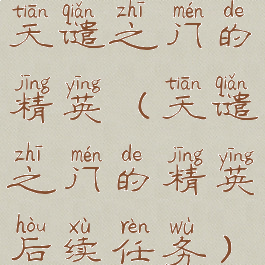 tiān qiǎn zhī mén de
天谴之门的
jīng yīng tiān qiǎn
精英（天谴
zhī mén de jīng yīng
之门的精英
hòu xù rèn wù
后续任务）